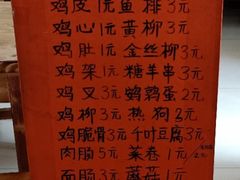 鸡皮1元鱼排3元
鸡心1元黄柳3元
鸡肚1元金丝柳3元
鸡架1元糖羊串3元
鸡叉3元鹌鹑蛋2元
鸡柳3元热狗3元
鸡脆骨3元千叶豆腐3元
肉肠5元菜卷1元/2元
面肠3元蘑菇1元